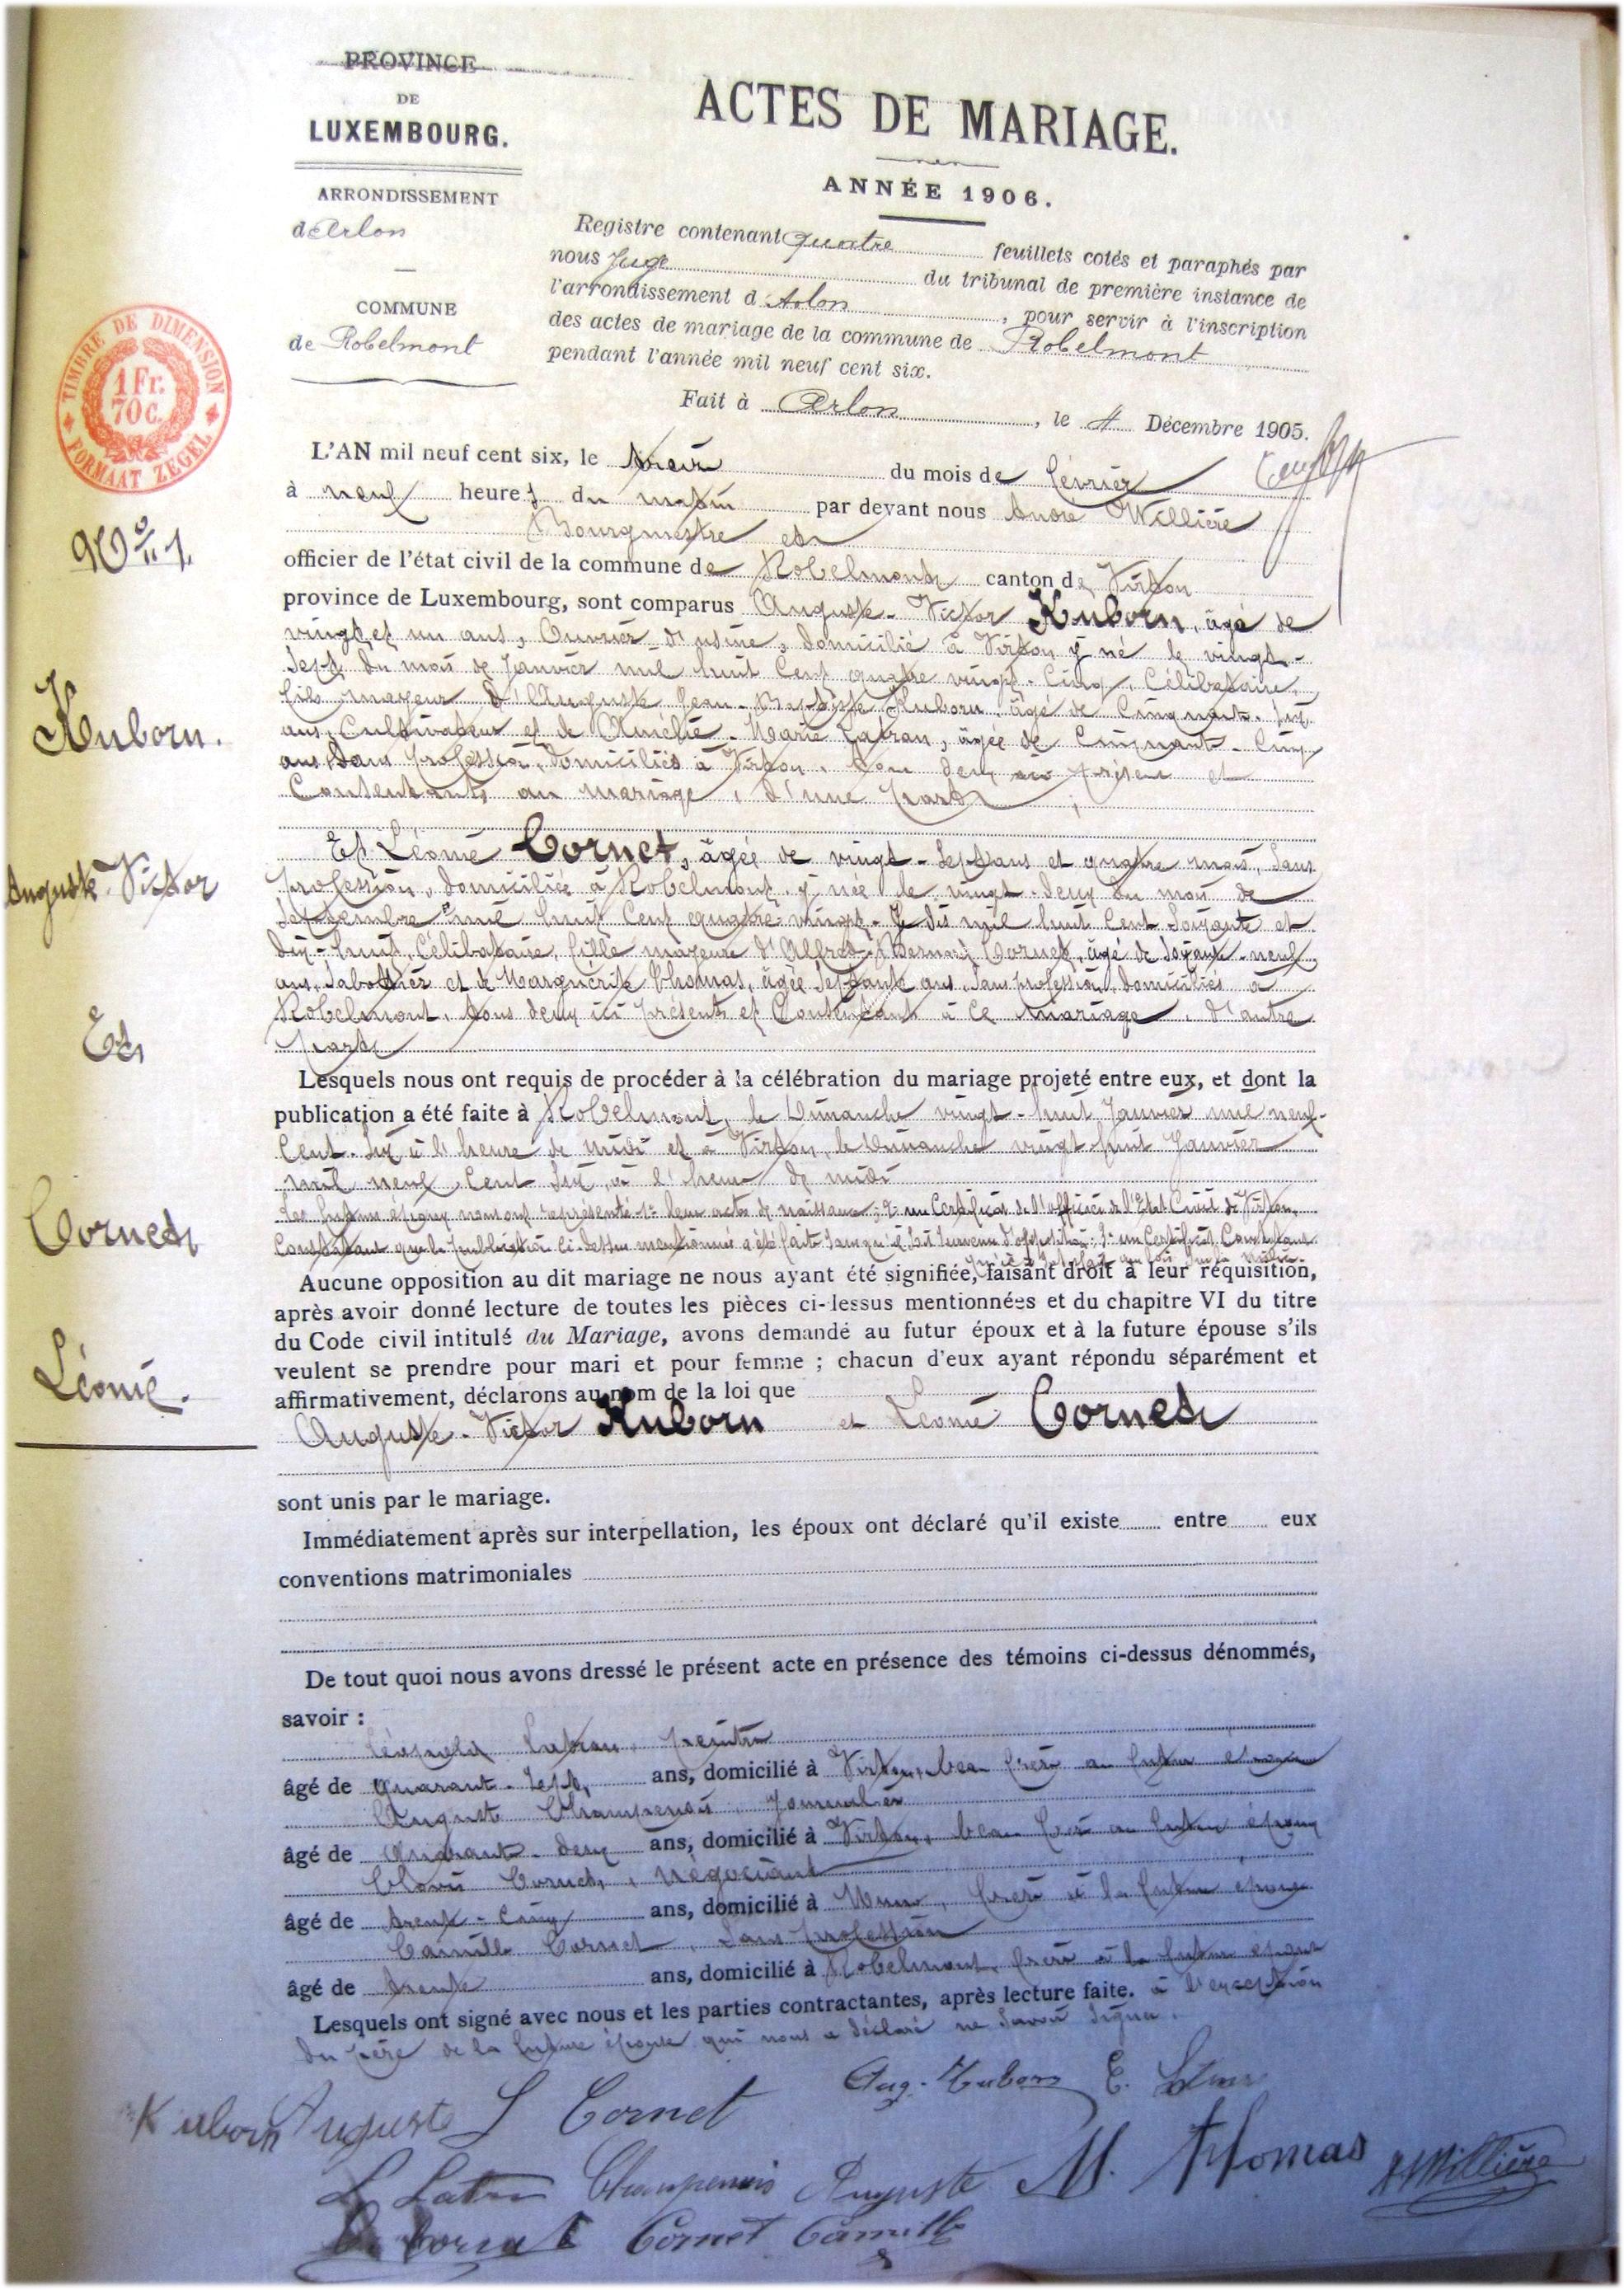 PROVINCE
DE
LUXEMBOURG.
ARRONDISSEMENT
d'Arlon
COMMUNE
de Robelmont
TIMBRE DE DIMENSION
1 Fr.
70 c.
FORMAAT ZEGEL
ACTES DE MARIAGE.
ANNÉE 1906.
Registre contenant quatre feuillets cotés et paraphés par
nous Juge du tribunal de première instance de
l'arrondissement d'Arlon, pour servir à l'inscription
des actes de mariage de la commune de Robelmont
pendant l'année mil neuf cent six.
Fait à Arlon, le 4 Décembre 1905.
No 1.
Kuborn.
Auguste Victor
Et
Cornet
Léonie.
L'AN mil neuf cent six, le trois du mois de février
à neuf heures du matin par devant nous André Willière
Bourgmestre et
officier de l'état civil de la commune de Robelmont canton de Virton
province de Luxembourg, sont comparus Auguste-Victor Kuborn, âgé de
vingt et un ans, Ouvrier d'usine, domicilié à Virton y né le vingt-
sept du mois de Janvier mil huit Cent quatre vingt-Cinq, Célibataire,
fils mayeur d'Auguste Jean-Baptiste Kuborn, âgé de Cinquante-six
ans, Cultivateur et de Amélie-Marie Latran, âgée de Cinquante-Cinq
ans, Sans profession, domiciliés à Virton, tous deux ici présent et
Consentants au mariage, d'une part;
Et Léonie Cornet, âgée de vingt-Sept ans et quatre mois, Sans
profession, domiciliée à Robelmont, y née le vingt-deux du mois de
Septembre mil huit Cent quatre-vingt-Je dis mil huit Cent Soixante et
dix-huit, Célibataire, fille mayeure d'Alfred-Bernard Cornet, âgé de Soixante-neuf
ans, Sabottier et de Marguerite Thomas, âgée Septante ans, Sans profession, domiciliés à
Robelmont, tous deux ici présents et Consentant à Ce mariage, d'autre
part
Lesquels nous ont requis de procéder à la célébration du mariage projeté entre eux, et dont la
publication a été faite à Robelmont, le Dimanche vingt-huit Janvier mil neuf
Cent-Six à l'heure de midi et à Virton, le Dimanche vingt-huit Janvier
mil neuf Cent Six, à l'heure de midi
Les futurs époux nous ont représenté 1° leur acte de naissance; 2° un Certificat de l'officier de l'Etat Civil de Virton,
Constatant que la publication ci-dessus mentionnée a été faite sans qu'il soit survenu d'opposition; 3° un Certificat Constatant
qu'il a satisfait aux lois sur la milice.
Aucune opposition au dit mariage ne nous ayant été signifiée, faisant droit à leur réquisition,
après avoir donné lecture de toutes les pièces ci-dessus mentionnées et du chapitre VI du titre
du Code civil intitulé du Mariage, avons demandé au futur époux et à la future épouse s'ils
veulent se prendre pour mari et pour femme ; chacun d'eux ayant répondu séparément et
affirmativement, déclarons au nom de la loi que
Auguste-Victor Kuborn et Léonie Cornet
sont unis par le mariage.
Immédiatement après sur interpellation, les époux ont déclaré qu'il existe entre eux
conventions matrimoniales
De tout quoi nous avons dressé le présent acte en présence des témoins ci-dessus dénommés,
savoir :
Léopold Latran, peintre
âgé de quarante-Sept ans, domicilié à Virton, beau frère au futur époux
Auguste Champenois, Journalier
âgé de quarante-deux ans, domicilié à Virton, beau frère au futur époux
Clovis Cornet, négociant
âgé de trente-cinq ans, domicilié à frère à la future épouse
Camille Cornet, Sans profession
âgé de trente ans, domicilié à Robelmont, frère à la future épouse
Lesquels ont signé avec nous et les parties contractantes, après lecture faite. à l'exception
du père de la future épouse qui nous a déclaré ne savoir signer.
Aug. Kuborn
Kuborn Auguste L Cornet
L Latran Champenois Auguste M. Thomas A Willière
C. Cornet Cornet Camille